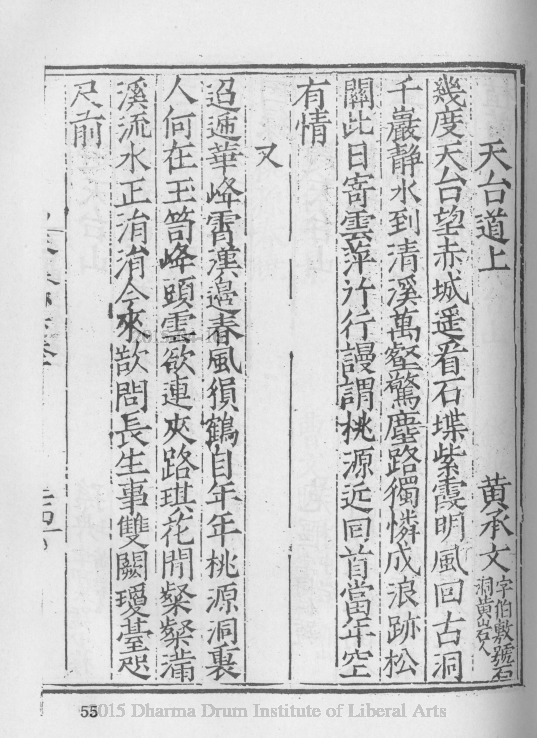 天台道上 黃承文 字伯敷號石洞黃山石人
幾度天台望赤城遥看石堞紫霞明風回古洞
千巖靜水到清溪萬壑驚塵路獨憐成浪跡松
關此日寄雲萍竹行謾謂桃源近回首當年空
有情
又
迢遞華峰霄漢邉春風猿鶴自年年桃源洞裏
人何在玉笥峰頭雲欲連夾路琪花開粲粲滿
溪流水正涓涓今來欲問長生事雙闕瓊臺咫
尺前
55
2015 Dharma Drum Institute of Liberal Arts